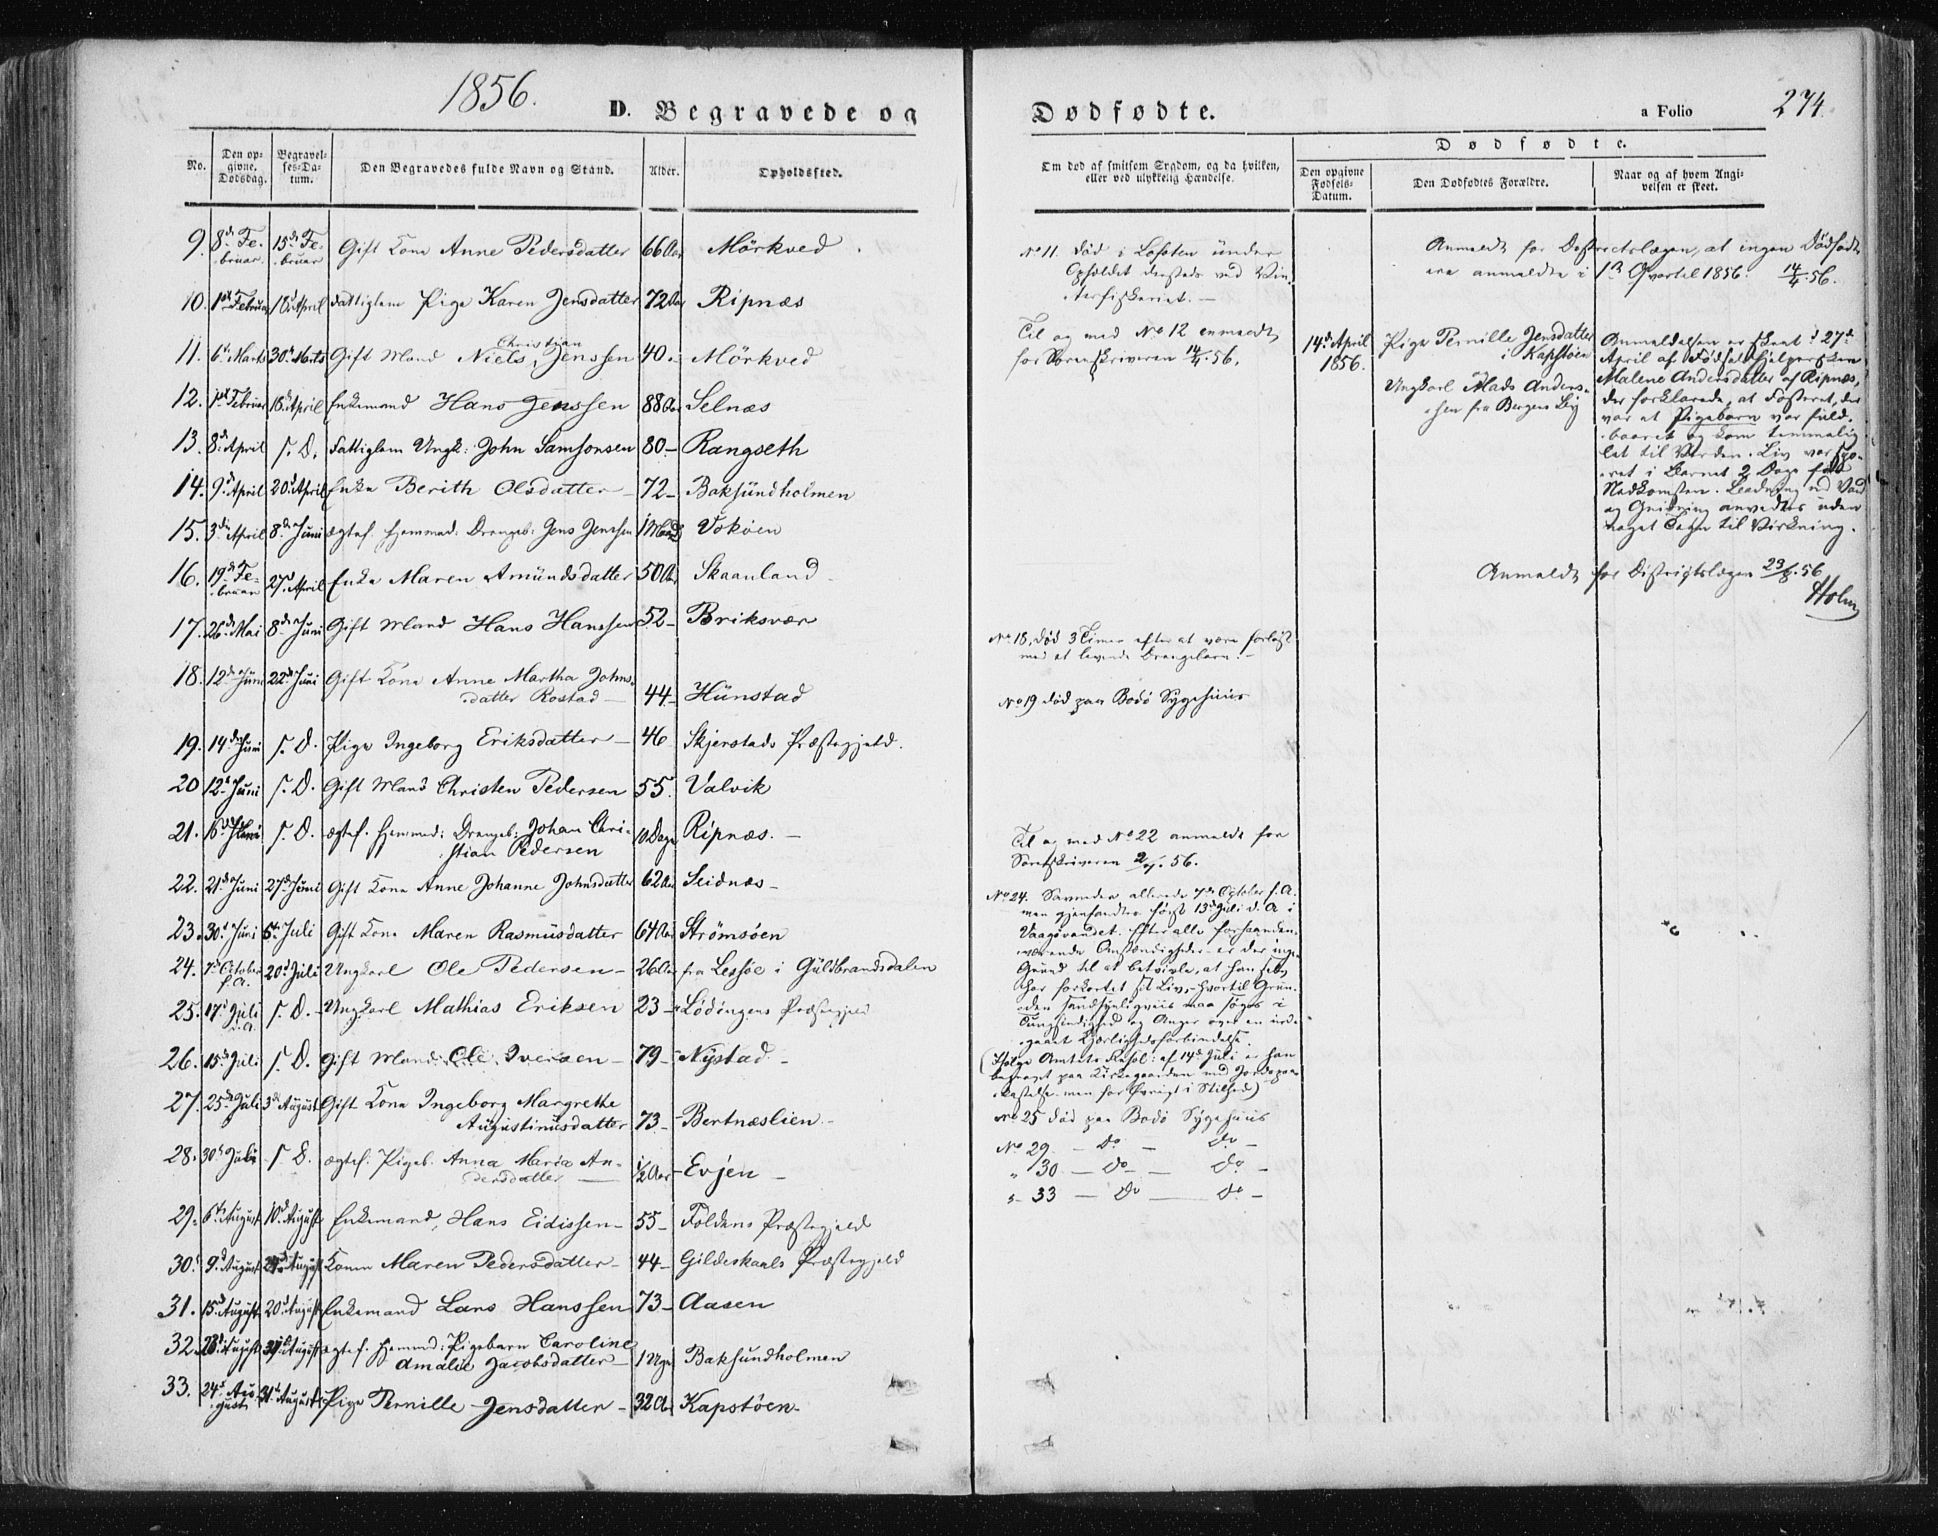 1856.
D. Begravede og
No.
Den opgivne Dødsdag.
Begravelses-Datum.
Den Begravedes fulde Navn og Stand.
Alder.
Opholdssted.
9. 8de Februar 15de Februar Gift Kone Anne Pedersdatter 66 Aar Mörkved
10. 1ste Februar 18de April Fattiglem Pige Karen Jensdatter 72 Aar Ripnæs
11. 6te Marts 30te Marts Gift Mand Niels Christian Jenssen 40 Mörkved
12. 1ste Februar 18de April Enkemand Hans Jenssen 88 Aar Selnæs
13. 8de April s. D. Fattiglem Ungk: John Samsonsen 80 - Rangseth
14. 9de April 20de April Enke Berith Olsdatter - 72 - Baksundholmen
15. 3de April 8de Juni ægtef. hjemmed: Drengeb: Jens Jenssen 1 Maaned Vokøen
16. 19de Februar 27de April Enke Maren Amundsdatter 50 Aar Skaanland
17. 26de Mai 8de Juni Gift Mand Hans Hanssen 52 - Briksvær
18. 12de Juni 22de Juni Gift Kone Anne Martha Johns-
datter Rostad - 44 - Hunstad
19. 14de Juni s. D. Pige Ingeborg Eriksdatter - 46 Skjerstads Præstegjeld.
20 12te Juni s. D. Gift Mand Christen Pedersen 55. Valvik
21. 16de Juni s. D. ægtef. hjemmed: Drengeb: Johan Chri-
stian Pedersen 10 Dage Ripnæs. -
22. 21de Juni 27de Juni Gift Kone Anne Johanne Johnsdatter 62 Aar Seidnæs -
23. 30te Juni 6te Juli Gift Kone Maren Rasmusdatter 64 Aar Strömsöen
24. 7de October f. A. 20de Juli Ungkarl Ole Pedersen - 26 Aar fra Lessöe i Guldbrandsdalen
25. 17de Juli d. A. s. D. - Ungkarl Mathias Eriksen 23 - Lödingens Præstegjeld
26. 15de Juli s. D. Gift Mand Ole Iversen - 79 - Nystad -
27. 25de Juli 3de August Gift Kone Ingeborg Margrethe
Augustinusdatter 73 - Bertnæslien -
28. 30te Juli s. D. ægtef. Pigeb. Anna Maria An-
dersdatter - 1/2 Aar - Evjen -
29. 6te August 10de August Enkemand, Hans Eidissen - 55 - Foldens Præstegjeld
30. 9de August 24de August Konen Maren Pedersdatter - 44 - Gildeskaals Præstegjeld
31. 15de August 20de August Enkemand Lars Hanssen 73 - Aasen
32. August 31te August ægtef. hjemmed: Pigebarn Caroline
Amalie Jacobsdatter - 1 Uge Baksundholmen
33. 24de August 31te August Pige Pernille Jensdatter - 32 Aar Kapstøen -
Dødfødte.
a Folio 274.
Om død af smitsom Sygdom, og da hvilken,
eller ved ulykkelig Hændelse.
Dødfødte.
Den opgivne Fødsels-Datum.
Den Dødfødtes Forældre.
Naar og af hvem Angivelsen er skeet.
No 11. Død i Lofoten under
Opholdet dersteds ved Vin-
terfiskeriet. -
Anmeldt for Distriktslægen, at ingen Dødfødte
ere anmeldte i 1ste Qvartal 1856. 14/4 56.
Til og med No 12 anmeldt
for Sorenskriveren 14/4 56.
14de April 1856.
Pige Pernille Jensdatter
i Kapstøen
Ungkarl Mads Anders-
sen fra Bergens By
Anmeldelsen er skeet d 27de
April af Fødselshjelpersken
Malene Andersdatter af Ripnæs,
der forklarede, at Fosteret, der
var et Pigebarn var fuld-
baaret og kom temmelig
let til Verden. Liv var spo-
ret i Barnet 2 Dage før
Nedkomsten. Badning ud Vand
og Gnidning anvendtes uden
noget Tegn til Virkning.
Anmeldt for Distriktslægen 23/8 56
Holm
No 18, død 3 Timer efter at være forløst
med et levende Drengebarn. -
No 19 død paa Bodö Sygehuus
Til og med No 22 anmeldt for
Sorenskriveren 2/7 56.
No 24. Savnedes allerede 7de October f. A.
men gjenfandtes først 13de Juli d. A i
Vaagøvandet. Efter alle forhaanden-
værende Omstændigheder er der ingen
Grund til at betvivle, at han selv
har forkortet sit Liv, - hvortil Grun-
den sandsynligviis maa søges i
Tungsindighed og Anger over en ind-
gaaet Kjærlighedsforbindelse.
(Ifølge Amtets Resol: af 14de Juli er han
begravet paa Kirkegaarden med Jordspaa-
kastelse men for øvrigt i Stilhed)
No 25 død paa Bodö Sygehuus
No 29 - Do - Do -
" 30 - Do - Do -
" 33 - Do - Do -